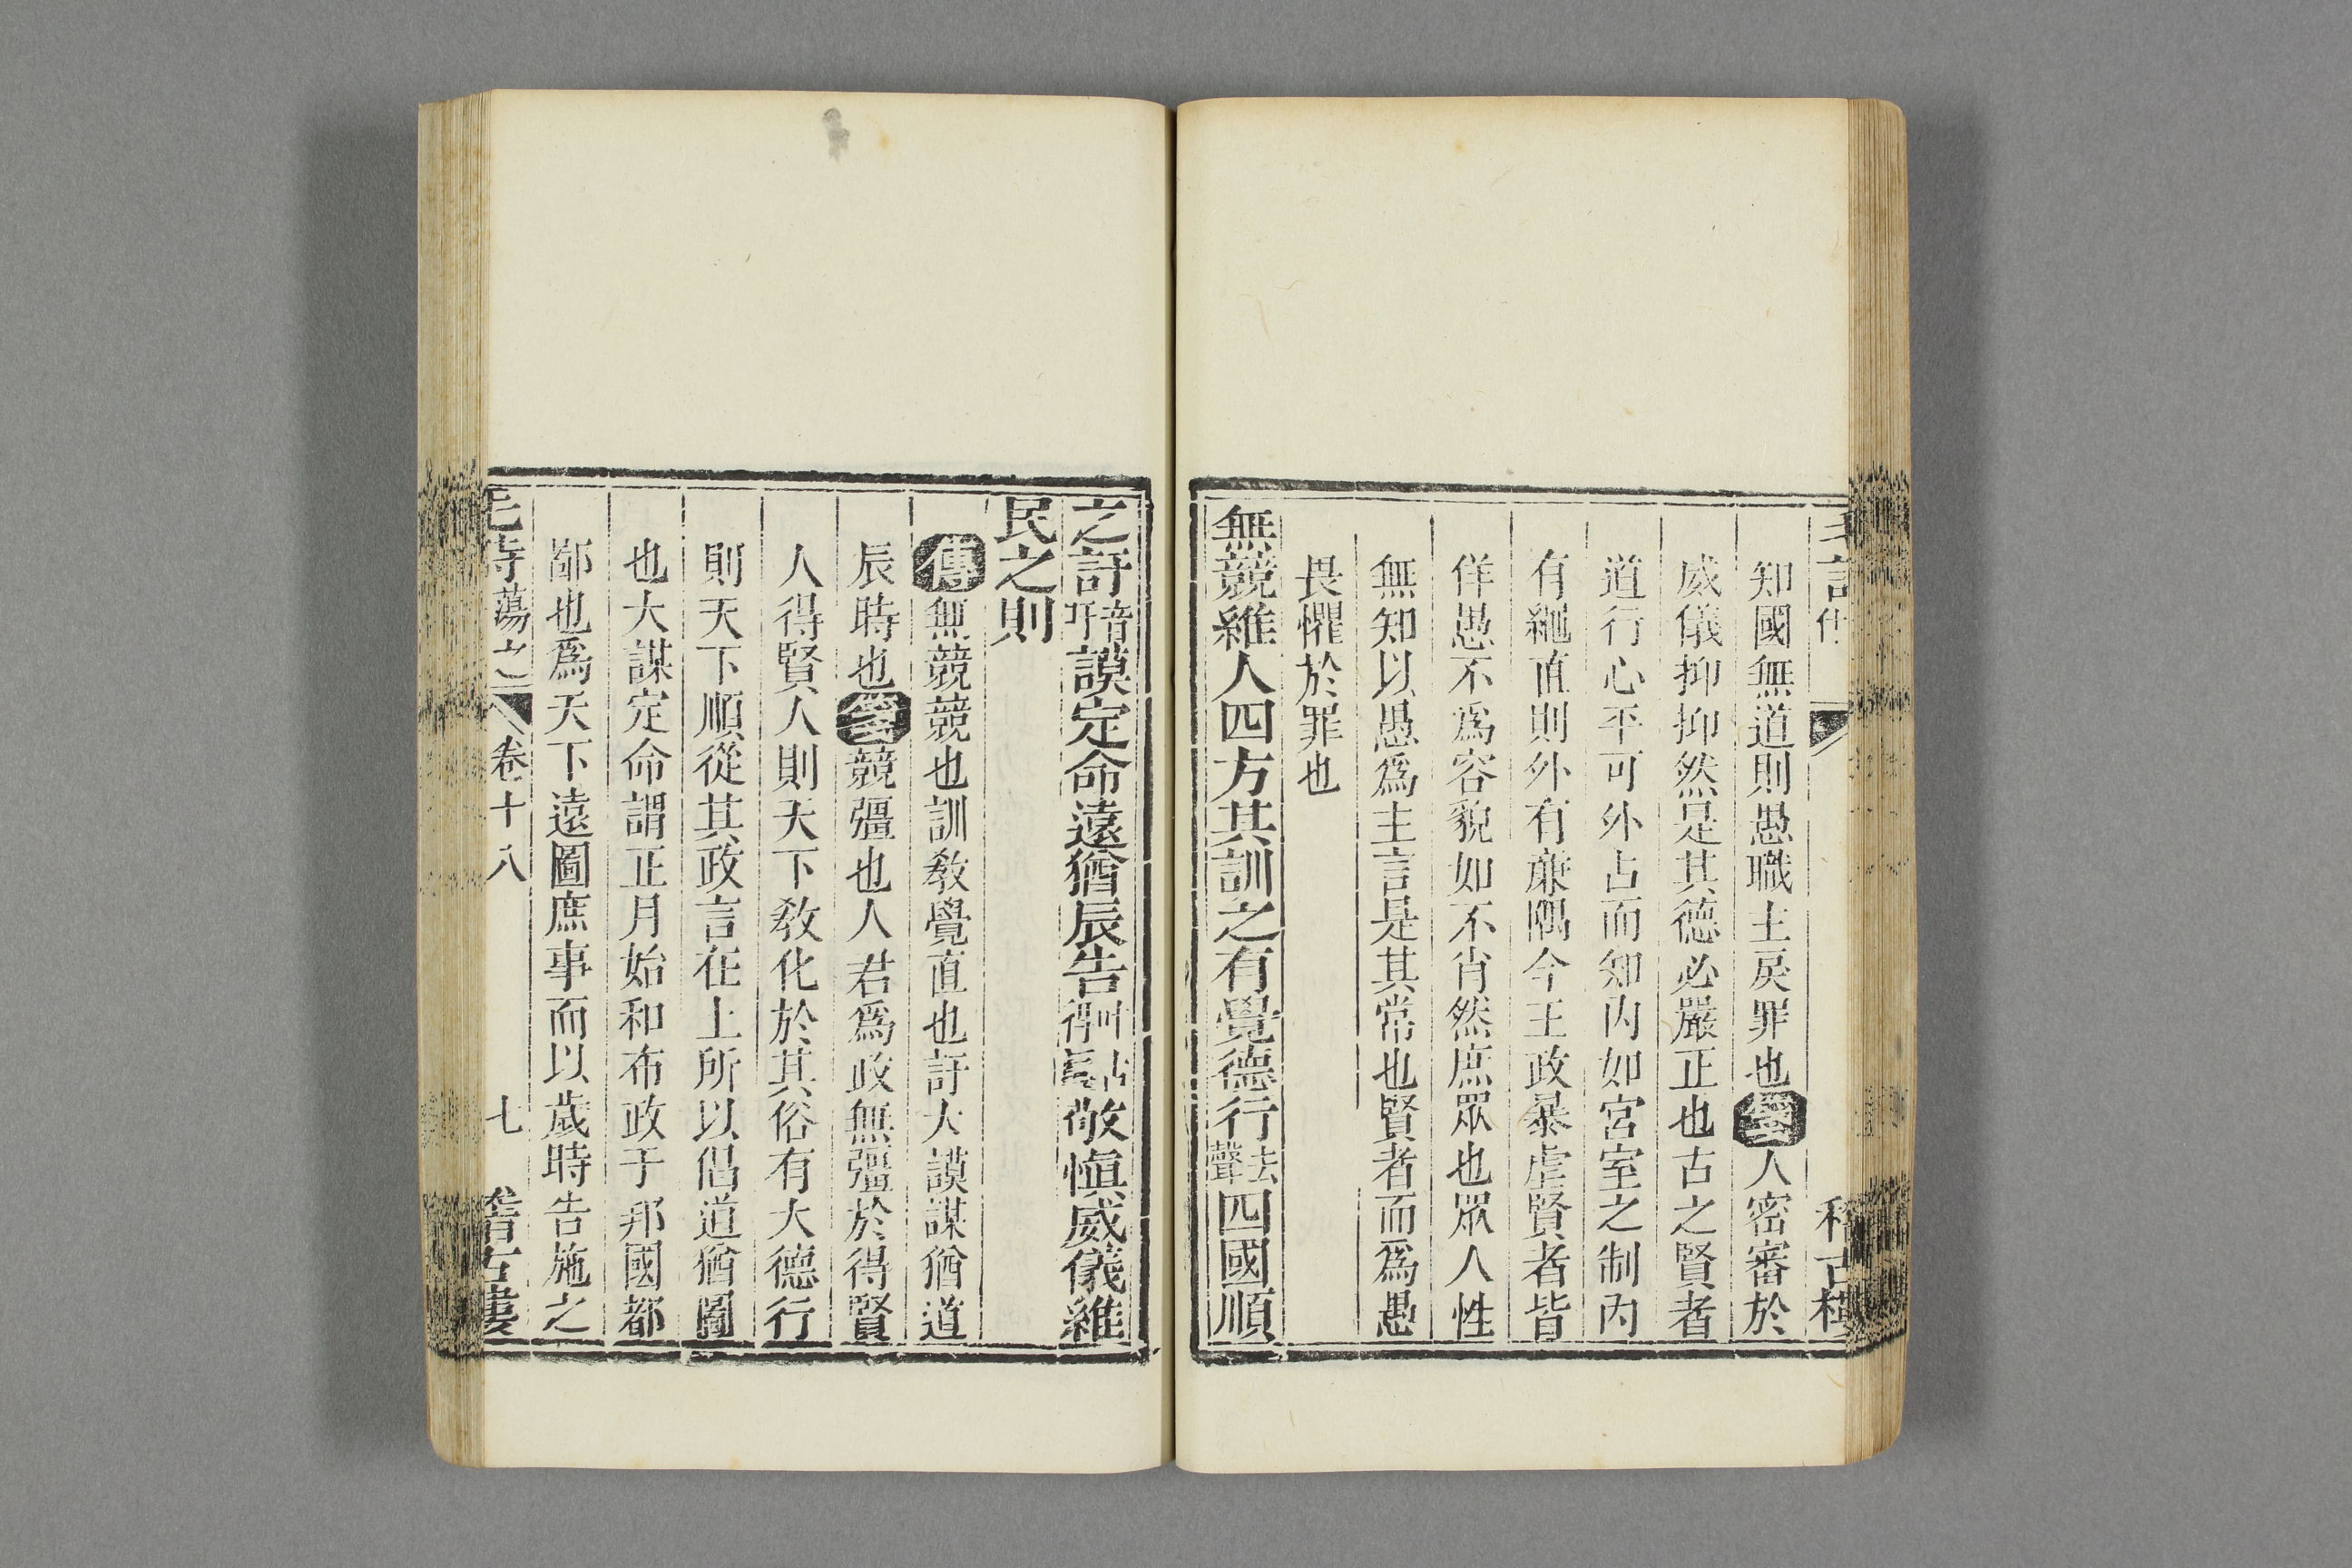 知國無道則愚職主戾罪也箋人密審於
威儀抑抑然是其德必嚴正也古之賢者
道行心平可外占而知内如宮室之制内
有繩直則外有亷隅今王政暴虐賢者皆
佯愚不爲容貌如不肖然庶眾也眾人性
無知以愚爲主言是其常也賢者而爲愚
畏懼於罪也
無競維人四方其訓之有覺德行去聲四國順
之訏音吁謨定命遠猶辰告敬愼威儀維
民之則
傳無競競也訓敎覺直也訏大謨謀猶道
辰時也箋競彊也人君爲政無彊於得賢
人得賢人則天下敎化於其俗有大德行
則天下順從其政言在上所以倡道猶圖
也大謀定命謂正月始和布政于邦國都
鄙也爲天下遠圖庶事而以歲時告施之
毛詩蕩之 卷十八 七 稽古樓